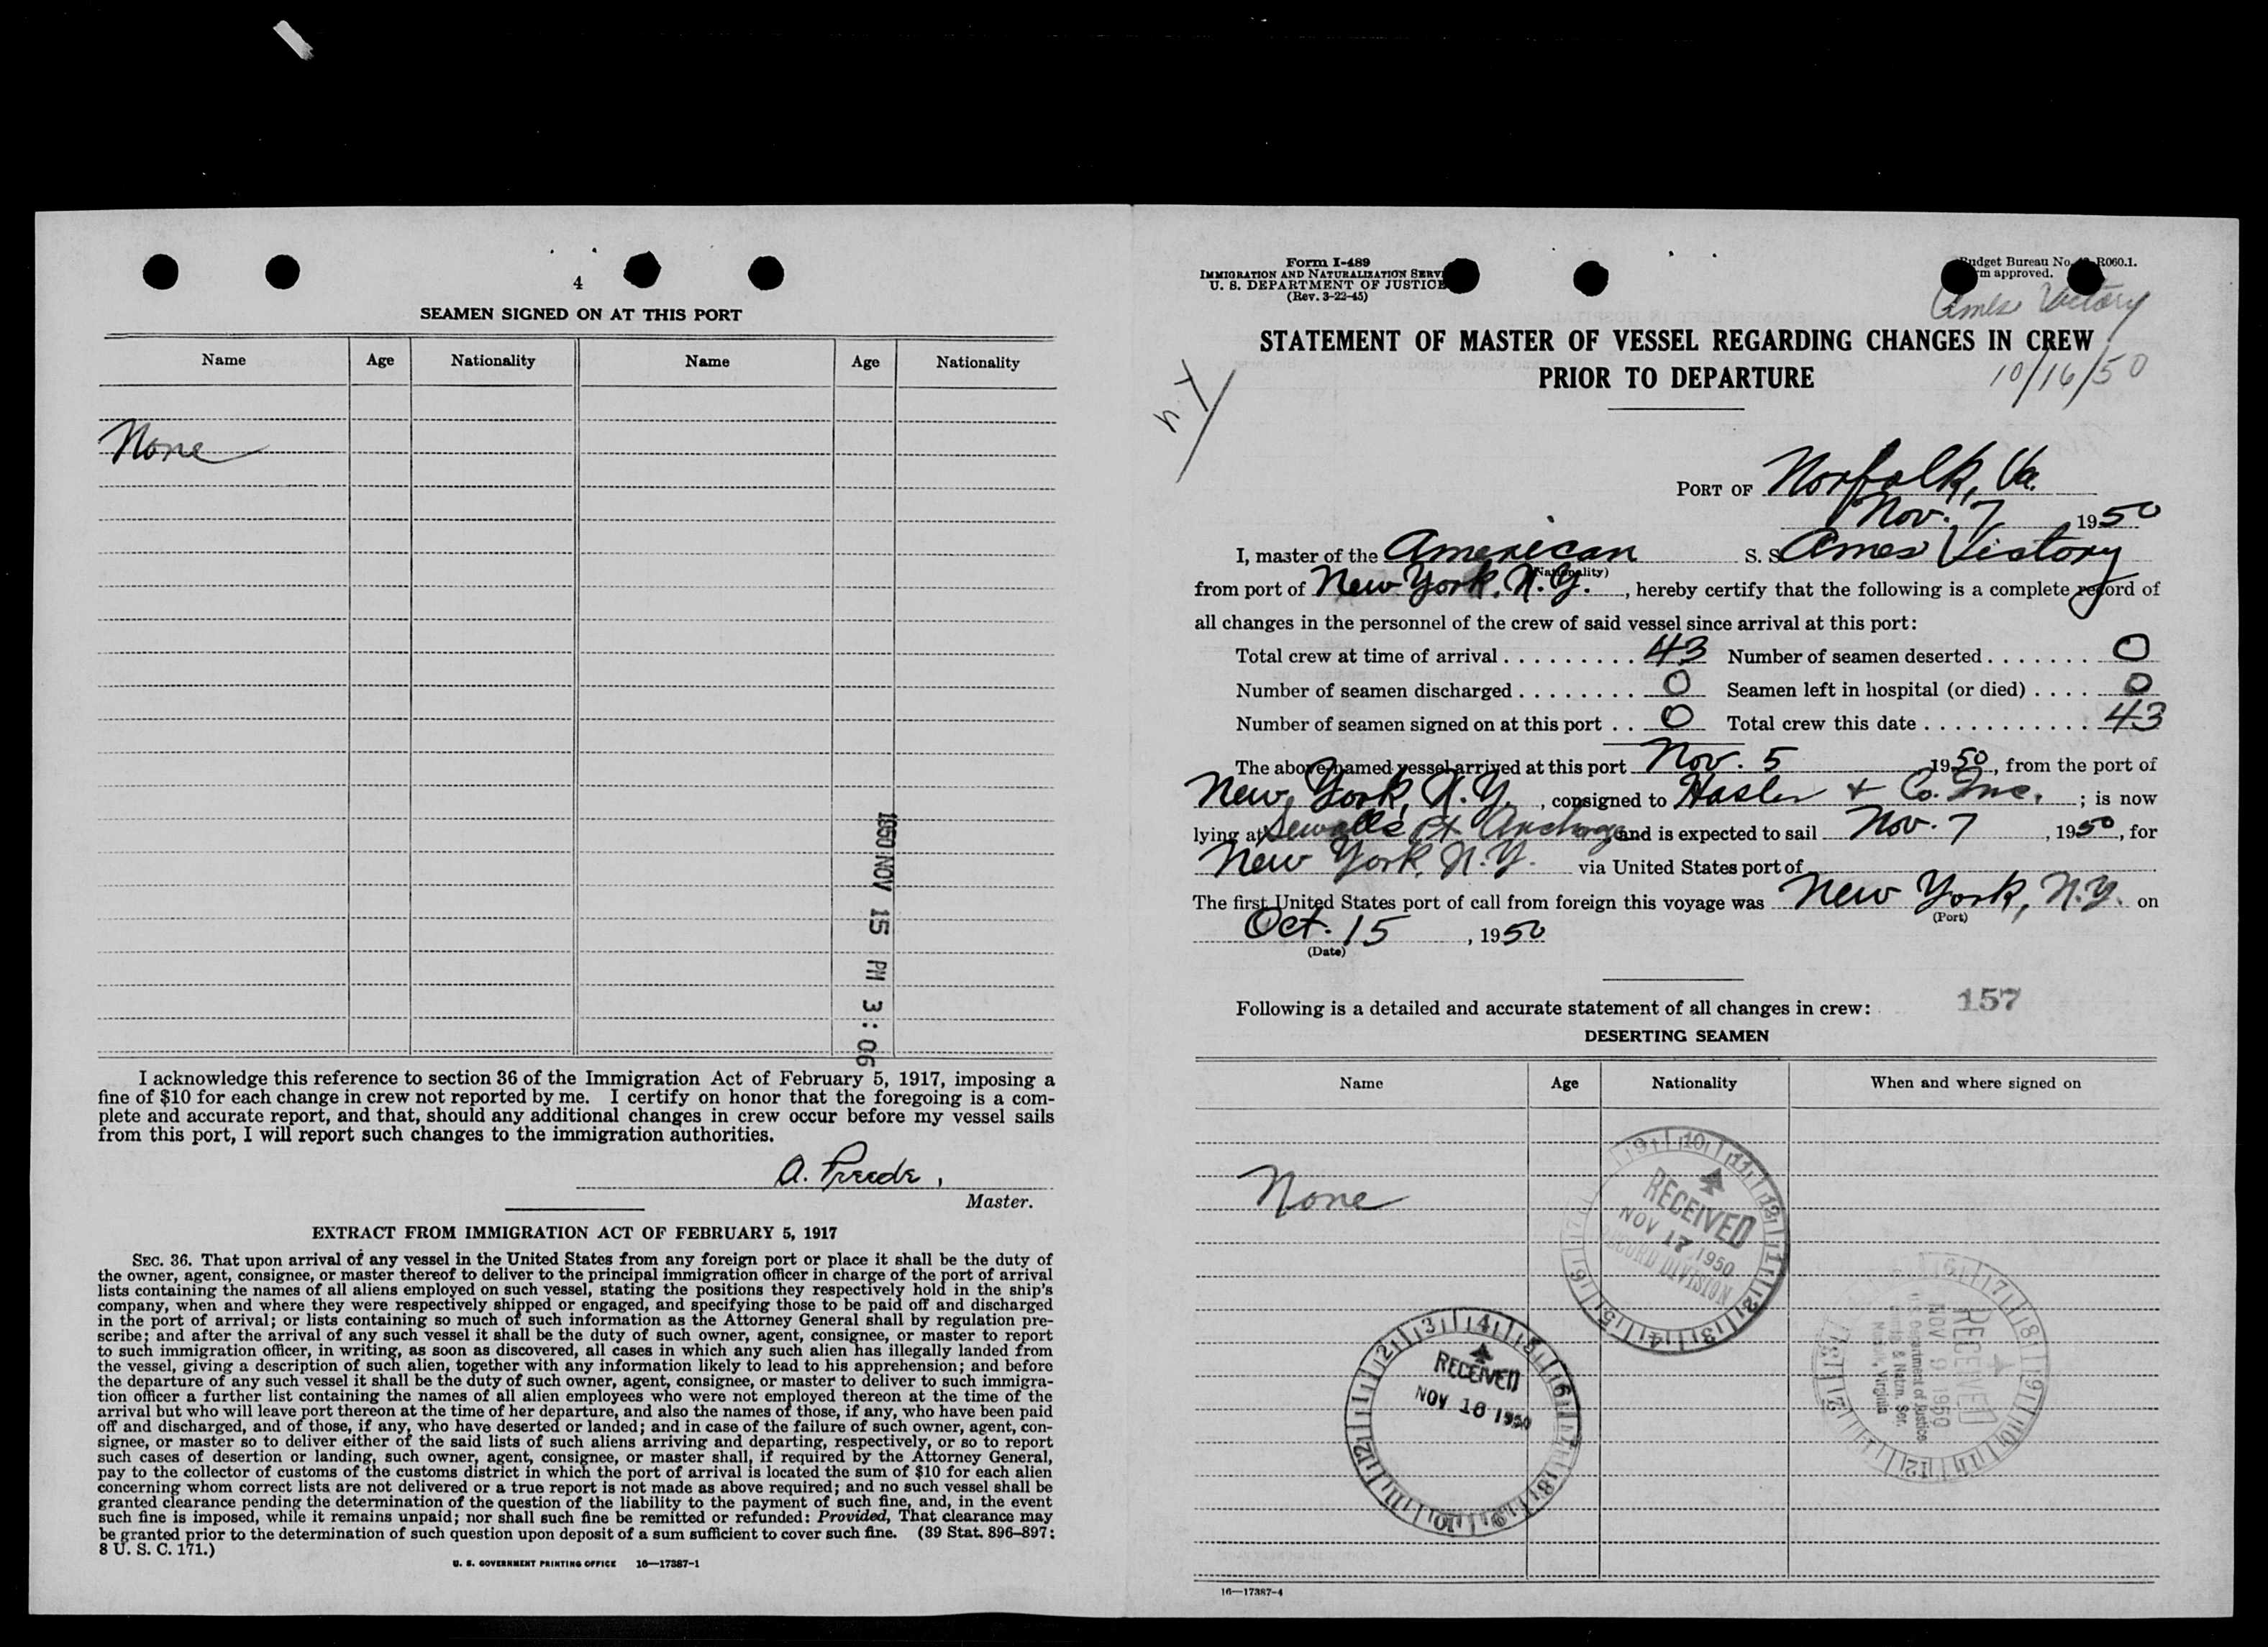 4
SEAMEN SIGNED ON AT THIS PORT
Name Age Nationality Name Age Nationality
None
1950 NOV 15 PM 3:06
I acknowledge this reference to section 36 of the Immigration Act of February 5, 1917, imposing a
fine of $10 for each change in crew not reported by me. I certify on honor that the foregoing is a com-
plete and accurate report, and that, should any additional changes in crew occur before my vessel sails
from this port, I will report such changes to the immigration authorities.
A. Preede,
Master.
EXTRACT FROM IMMIGRATION ACT OF FEBRUARY 5, 1917
SEC. 36. That upon arrival of any vessel in the United States from any foreign port or place it shall be the duty of
the owner, agent, consignee, or master thereof to deliver to the principal immigration officer in charge of the port of arrival
lists containing the names of all aliens employed on such vessel, stating the positions they respectively hold in the ship's
company, when and where they were respectively shipped or engaged, and specifying those to be paid off and discharged
in the port of arrival; or lists containing so much of such information as the Attorney General shall by regulation pre-
scribe; and after the arrival of any such vessel it shall be the duty of such owner, agent, consignee, or master to report
to such immigration officer, in writing, as soon as discovered, all cases in which any such alien has illegally landed from
the vessel, giving a description of such alien, together with any information likely to lead to his apprehension; and before
the departure of any such vessel it shall be the duty of such owner, agent, consignee, or master to deliver to such immigra-
tion officer a further list containing the names of all alien employees who were not employed thereon at the time of the
arrival but who will leave port thereon at the time of her departure, and also the names of those, if any, who have been paid
off and discharged, and of those, if any, who have deserted or landed; and in case of the failure of such owner, agent, con-
signee, or master so to deliver either of the said lists of such aliens arriving and departing, respectively, or so to report
such cases of desertion or landing, such owner, agent, consignee, or master shall, if required by the Attorney General,
pay to the collector of customs of the customs district in which the port of arrival is located the sum of $10 for each alien
concerning whom correct lists are not delivered or a true report is not made as above required; and no such vessel shall be
granted clearance pending the determination of the question of the liability to the payment of such fine, and, in the event
such fine is imposed, while it remains unpaid; nor shall such fine be remitted or refunded: Provided, That clearance may
be granted prior to the determination of such question upon deposit of a sum sufficient to cover such fine. (39 Stat. 896-897;
8 U. S. C. 171.)
U. S. GOVERNMENT PRINTING OFFICE 16—17387-1
Form I-489
IMMIGRATION AND NATURALIZATION SERV
U. S. DEPARTMENT OF JUSTICE
(Rev. 3-22-45)
Budget Bureau No. R060.1.
rm approved.
Ames Victory
STATEMENT OF MASTER OF VESSEL REGARDING CHANGES IN CREW
PRIOR TO DEPARTURE
10/16/50
N.Y
PORT OF Norfolk, Va.
Nov. 7 1950
I, master of the American S. S. Ames Victory
(Nationality)
from port of New York, N.Y. , hereby certify that the following is a complete record of
all changes in the personnel of the crew of said vessel since arrival at this port:
Total crew at time of arrival . . . . . . . . . 43 Number of seamen deserted . . . . . . . 0
Number of seamen discharged . . . . . . . . 0 Seamen left in hospital (or died) . . . . 0
Number of seamen signed on at this port . . 0 Total crew this date . . . . . . . . . . . 43
The above-named vessel arrived at this port Nov. 5 1950, from the port of
New York, N.Y. , consigned to Hasler & Co. Inc. ; is now
lying at Sewalls Pt Anchorage, and is expected to sail Nov. 7 , 1950, for
New York, N.Y. via United States port of
The first United States port of call from foreign this voyage was New York, N.Y. on
(Port)
Oct. 15 , 1950
(Date)
Following is a detailed and accurate statement of all changes in crew: 157
DESERTING SEAMEN
Name Age Nationality When and where signed on
None
RECEIVED
NOV 17 1950
RECORD DIVISION
RECEIVED
NOV 16 1950
RECEIVED
NOV 9 1950
U.S. Department of Justice
& Natzn. Ser.
Virginia
16—17387-4